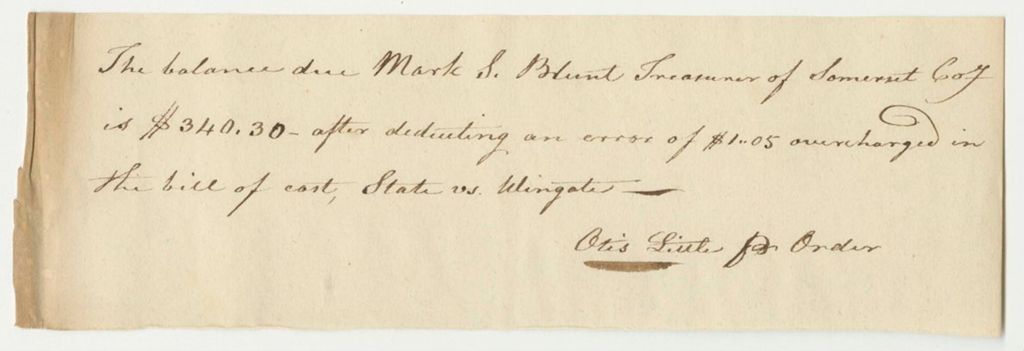 The balance due Mark S. Blunt Treasurer of Somerset Coy
is $340.30 - after deducting an error of $1.05 overcharged in
the bill of cost, State vs. Wingate —
Otis Little pr Order